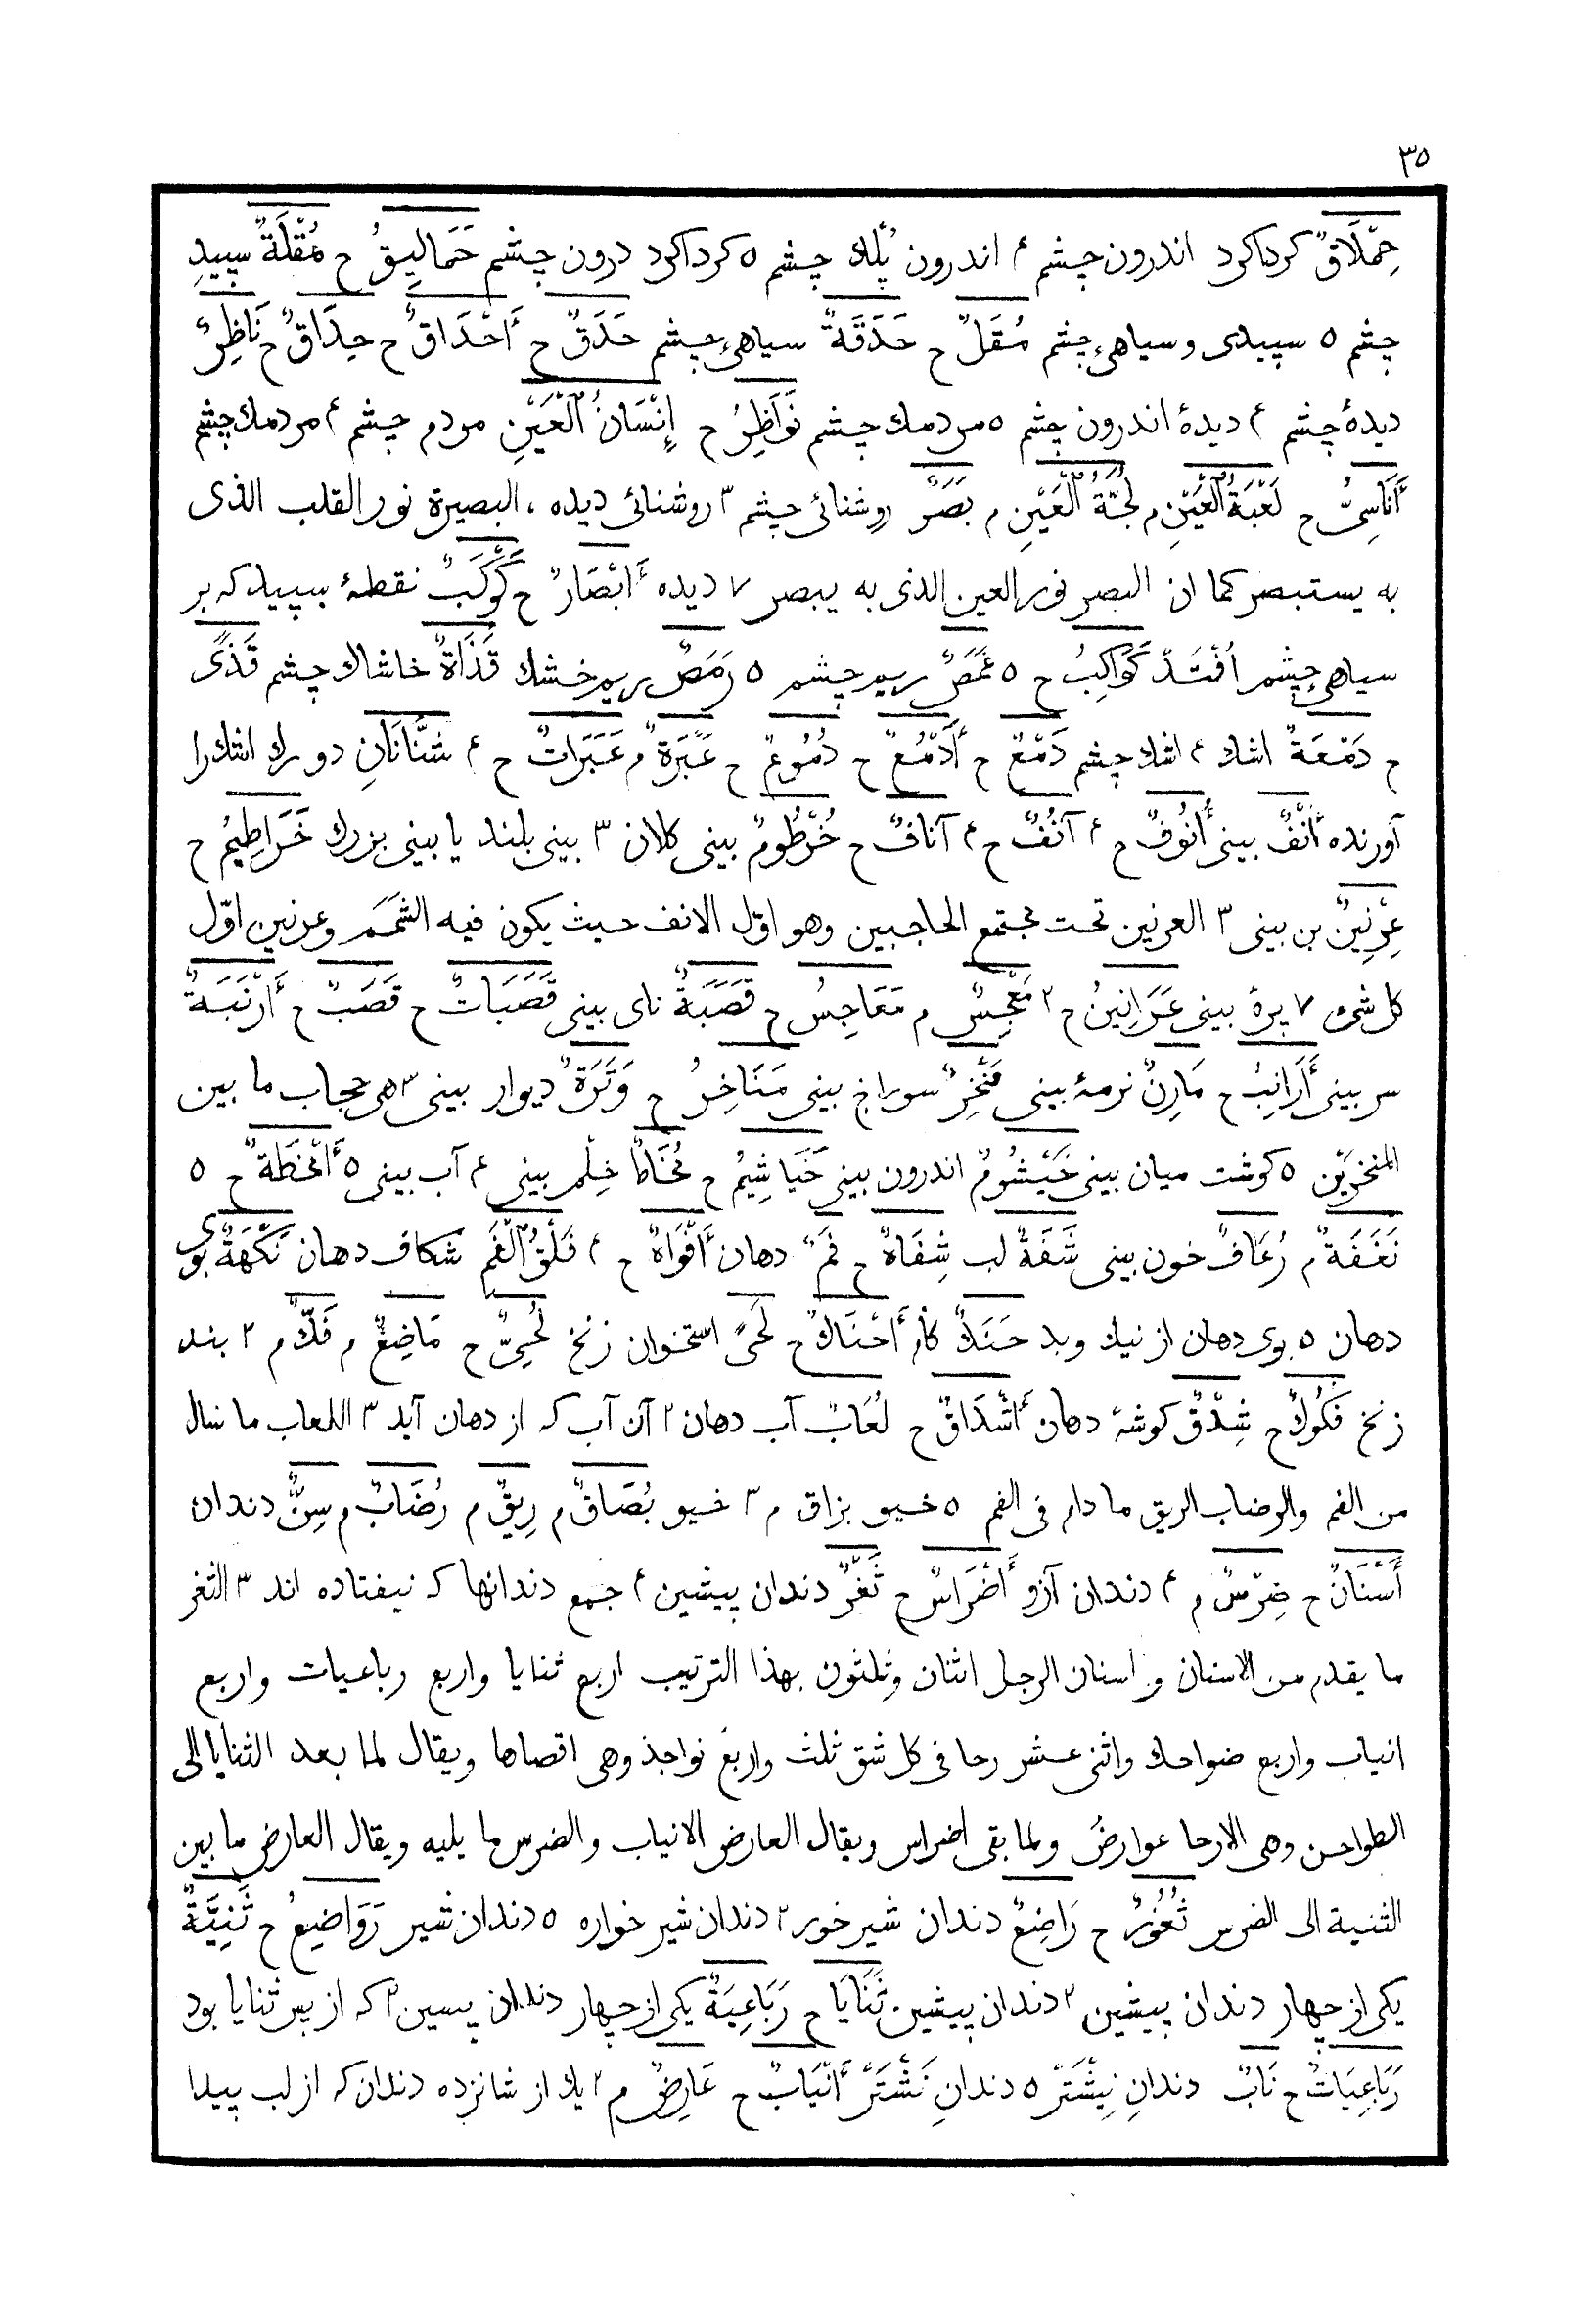 ۳۵
حِمْلَاقٌ كرداكرد اندرون چشم ۴ اندرون پُلك چشم ۵ كرداكرد درون چشم حَمَالِيقُ ح مُقْلَةٌ سپيدِ
چشم ۵ سپيدى و سياهىءِ چشم مُقَلٌ ح حَدَقَةٌ سياهىءِ چشم حَدَقٌ ح أَحْدَاقٌ ح حِدَاقٌ ح نَاظِرٌ
ديدۀ چشم ۴ ديدۀ اندرون چشم ۵ مردمك چشم نَوَاظِرُ ح إِنْسَانُ الْعَيْنِ مردم چشم ۴ مردمك چشم
أَنَاسِىُّ ح لُعْبَةُ الْعَيْنِ م لُجَّةُ الْعَيْنِ م بَصَرٌ روشنائى چشم ۳ روشنائى ديده ، البصيرة نور القلب الذى
به يستبصر كما ان البصر نور العين الذى به يبصر ۷ ديده أَبْصَارٌ ح كَوْكَبٌ نقطۀ سپيد كه بر
سياهىءِ چشم اُفْتَدْ كَوَاكِبُ ح ۵ غَمَصٌ ريم چشم ۵ رَمَصٌ ريم خشك قَذَاةٌ خاشاك چشم قَذًى
ح دَمْعَةٌ اشك ۴ اشك چشم دَمْعٌ ح أَدْمُعٌ ح دُمُوعٌ ح عَبْرَةٌ م عَبَرَاتٌ ح ۴ شَنَّانَانِ دو رك اشك را
آورنده أَنْفٌ بينى أُنُوفٌ ح ۴ آنُفٌ ح ۴ آنَافٌ ح خُرْطُومٌ بينى كلان ۳ بينى بلند يا بينى بزرك خَرَاطِيمُ ح
عِرْنِينٌ بن بينى ۳ العرنين تحت مجتمع الحاجبين وهو اوّل الانف حيث يكون فيه الشمَم وعرنين اوّل
كل شىء ۷ پرۀ بينى عَرَانِينُ ح ۲ مَعْجِسٌ م مَعَاجِسُ ح قَصَبَةٌ ناى بينى قَصَبَاتٌ ح قَصَبٌ ح أَرْنَبَةٌ
سر بينى أَرَانِبُ ح مَارِنٌ نرمۀ بينى مَنْخِرٌ سوراخ بينى مَنَاخِرُ ح وَتَرَةٌ ديوار بينى ۳ هى حجاب ما بين
المنخرَيْن ۵ كوشت ميان بينى خَيْشُومٌ اندرون بينى خَيَاشِيمُ ح مُخَاطٌ خِلْم بينى ۴ آب بينى ۵ أَمْخِطَةٌ ح ۵
نَغَفَةٌ م رُعَافٌ خون بينى شَفَةٌ لب شِفَاهٌ ح فَمٌ دهان أَفْوَاهٌ ح ۴ فَلْقُ الْفَمِ شكاف دهان نَكْهَةٌ بوى
دهان ۵ بوى دهان از نيك و بد حَنَكٌ كام أَحْنَاكٌ ح لَحْىٌ استخوان زنخ لُحِىٌّ ح مَاضِغٌ م فَكٌّ م ۲ بند
زنخ فُكُوكٌ ح شِدْقٌ كوشۀ دهان أَشْدَاقٌ ح لُعَابٌ آب دهان ۲ آن آب كه از دهان آيد ۳ اللعاب ما سال
من الفم والرضاب الريق ما دام فى الفم ۵ خيو بزاق م ۳ خيو بُصَاقٌ م رِيقٌ م رُضَابٌ م سِنٌّ دندان
أَسْنَانٌ ح ضِرْسٌ م ۴ دندان آزو أَضْرَاسٌ ح ثَغْرٌ دندان پيشين ۴ جمع دندانها كه نيفتاده اند ۳ الثغر
ما يقدم من الاسنان و اسنان الرجل اثنان وثلثون بهذا الترتيب اربع ثنايا واربع رباعيات واربع
انياب واربع ضواحك واثنى عشر رحا فى كل شق ثلث واربع نواجذ وهى اقصاها ويقال لما بعد الثنايا الى
الطواحن وهى الارحا عوارض ولما بقى اضراس ويقال العارض الانياب والضرس ما يليه ويقال العارض ما بين
الثنية الى الضرس ثُغُورٌ ح رَاضِعٌ دندان شير خور ۲ دندان شير خواره ۵ دندان شير رَوَاضِعُ ح ثَنِيَّةٌ
يكى از چهار دندان پيشين ۲ دندان پيشين ثَنَايَا ح رَبَاعِيَةٌ يكى از چهار دندان پسين ۲ كه از پس ثنايا بود
رَبَاعِيَاتٌ ح نَابٌ دندانِ نِيشْتَرْ ۵ دندانِ نَشْتَرْ أَنْيَابٌ ح عَارِضٌ م ۲ يك از شانزده دندان كه از لب پيدا